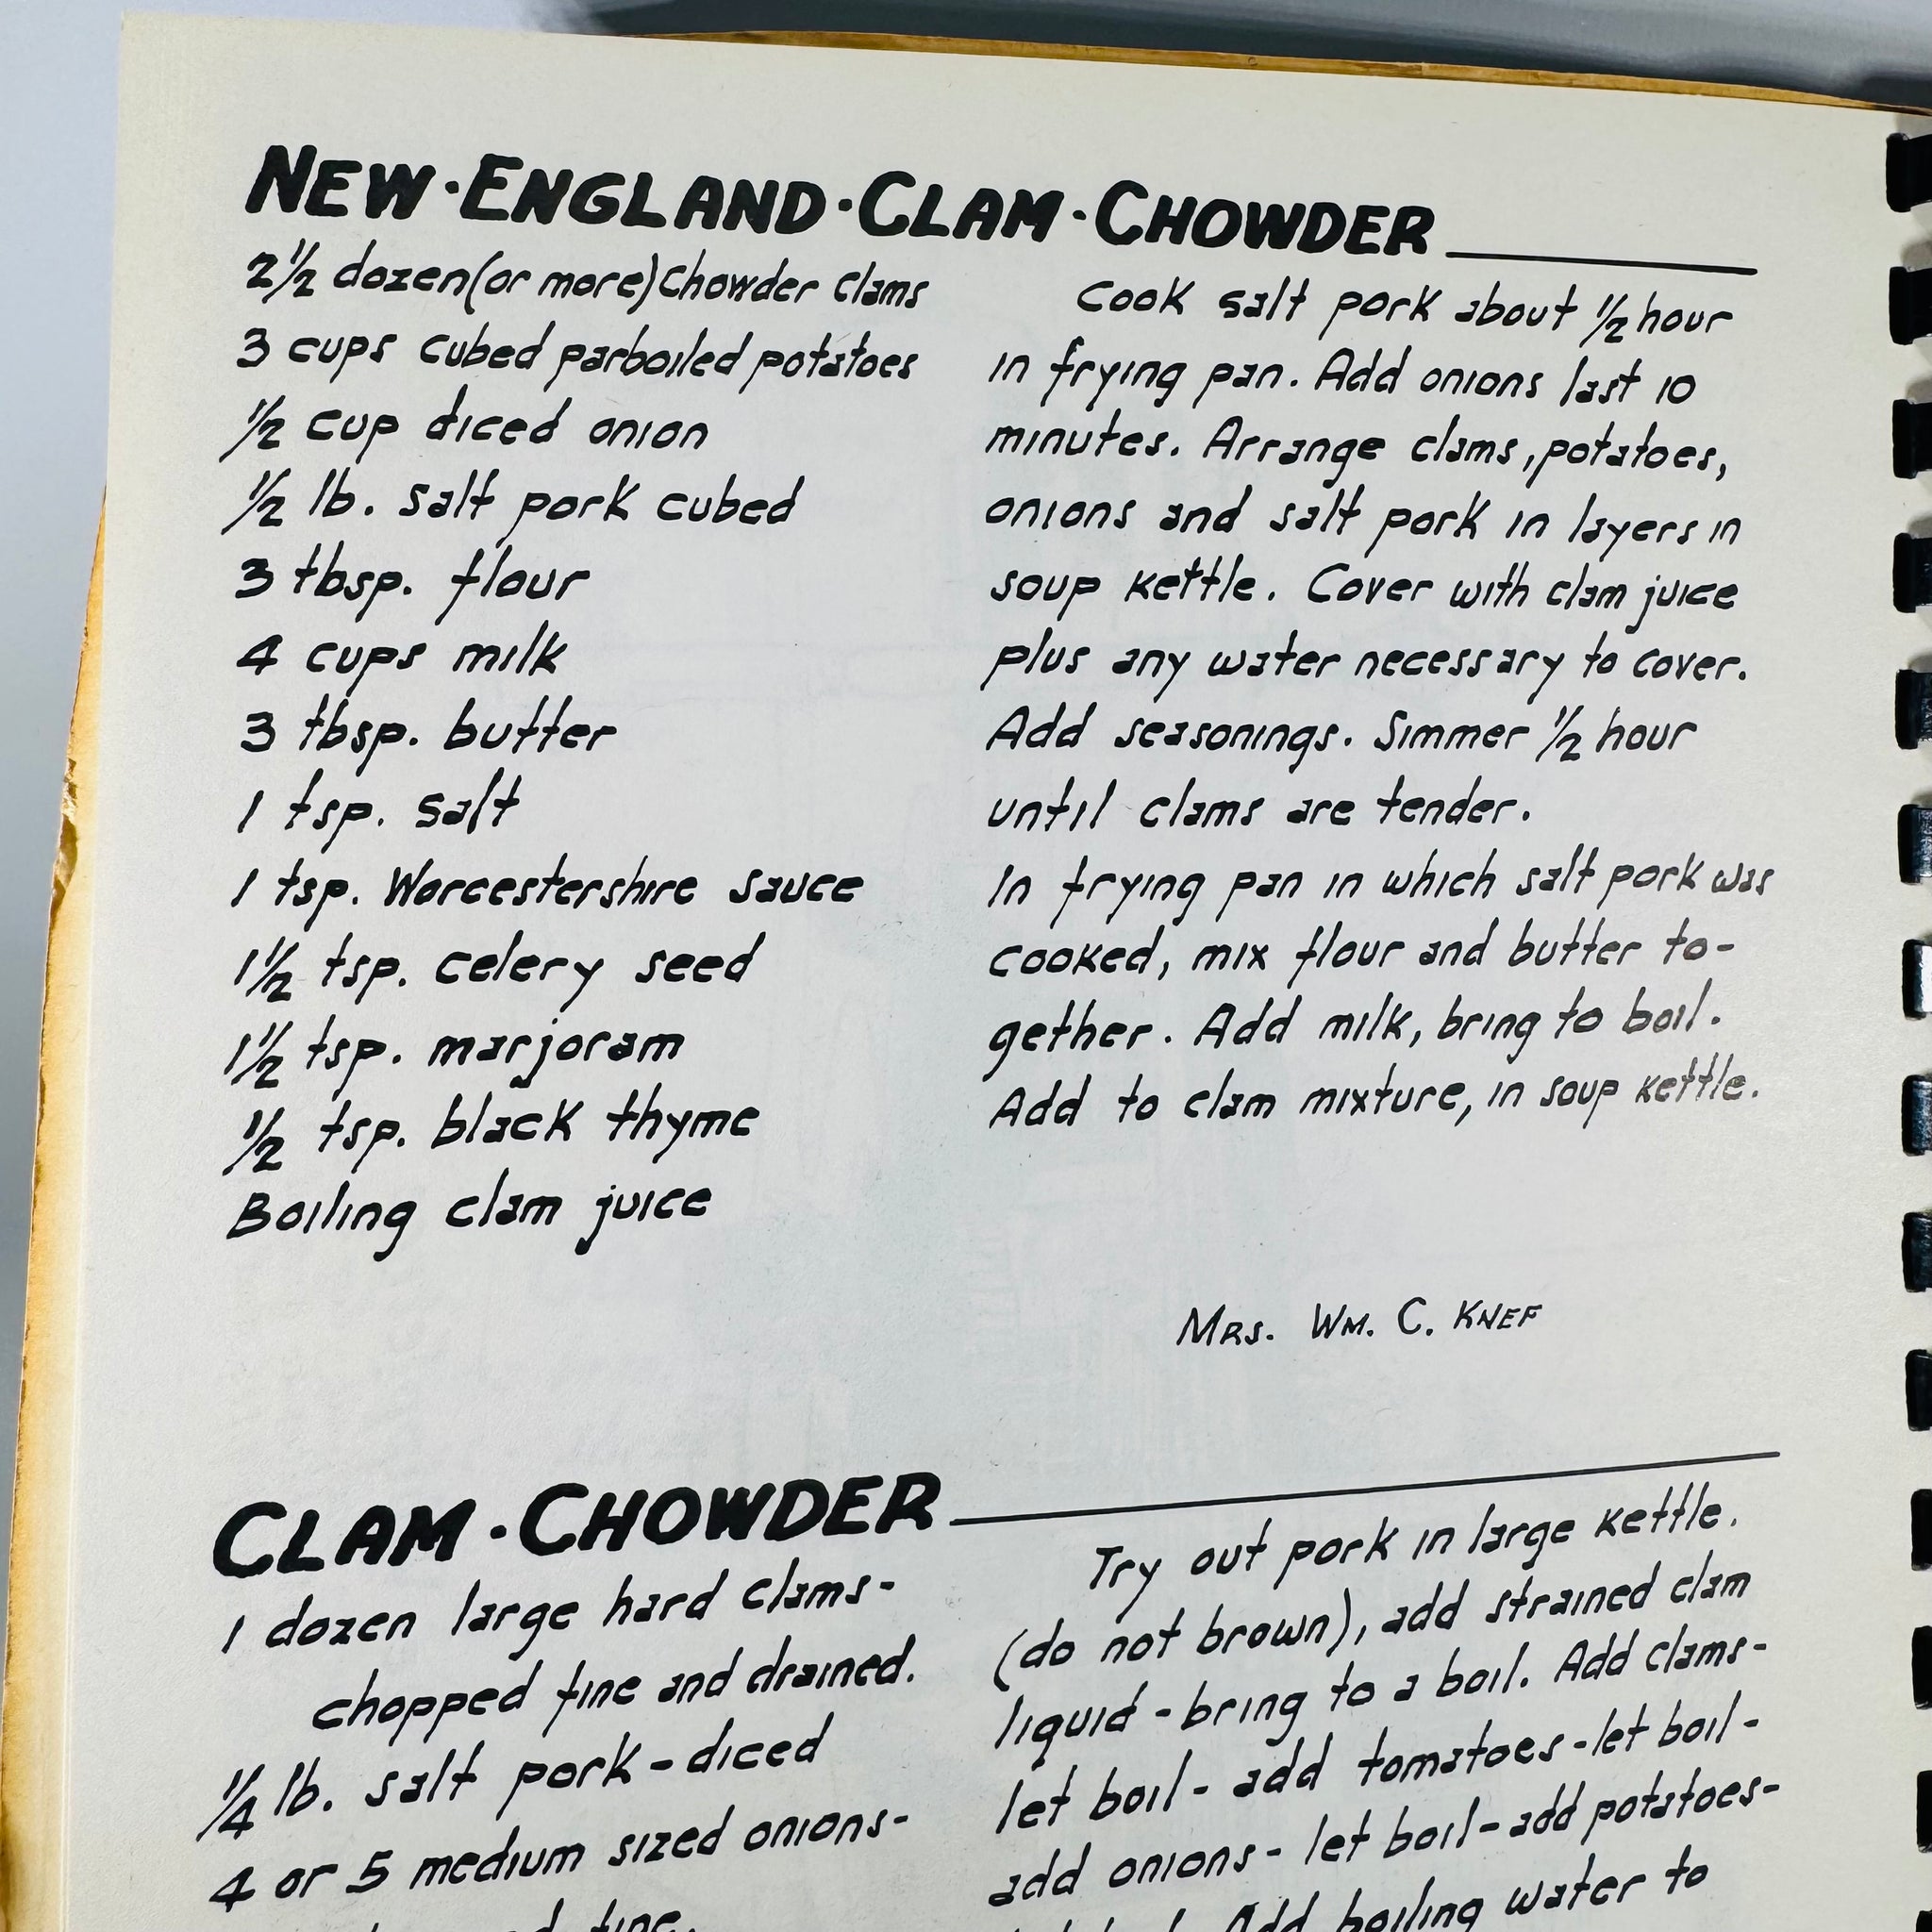 NEW·ENGLAND·CLAM·CHOWDER
2½ dozen (or more) chowder clams
3 cups cubed parboiled potatoes
½ cup diced onion
½ lb. salt pork cubed
3 tbsp. flour
4 cups milk
3 tbsp. butter
1 tsp. salt
1 tsp. Worcestershire sauce
1½ tsp. celery seed
1½ tsp. marjoram
½ tsp. black thyme
Boiling clam juice
Cook salt pork about ½ hour
in frying pan. Add onions last 10
minutes. Arrange clams, potatoes,
onions and salt pork in layers in
soup kettle. Cover with clam juice
plus any water necessary to cover.
Add seasonings. Simmer ½ hour
until clams are tender.
In frying pan in which salt pork was
cooked, mix flour and butter to-
gether. Add milk, bring to boil.
Add to clam mixture, in soup kettle.
MRS. WM. C. KNEF
CLAM·CHOWDER
1 dozen large hard clams-
chopped fine and drained.
¼ lb. salt pork-diced
4 or 5 medium sized onions-
fine.
Try out pork in large kettle.
(do not brown), add strained clam
liquid-bring to a boil. Add clams-
let boil- add tomatoes-let boil-
add onions- let boil-add potatoes-
Add boiling water to